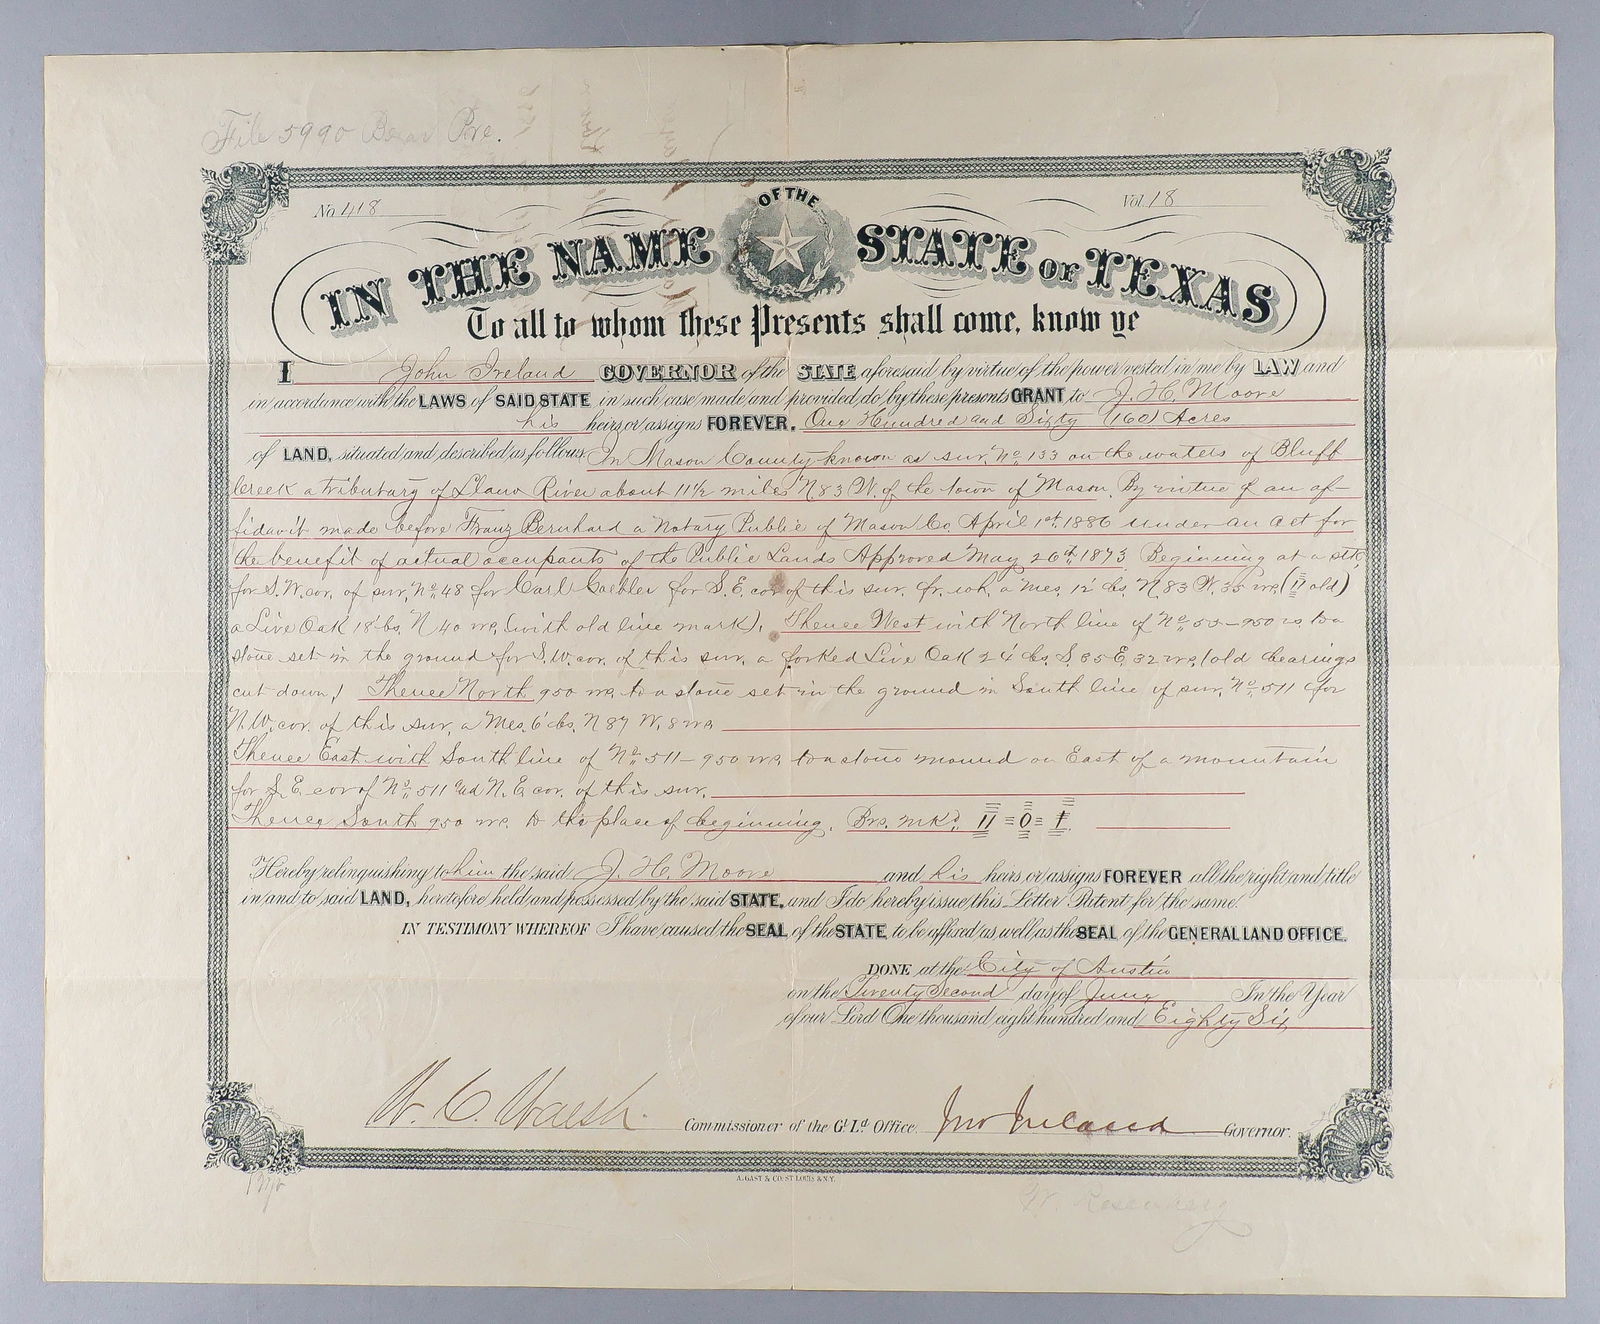 File 5990 Bexar Pre.
No. 418
Vol. 18
IN THE NAME OF THE STATE OF TEXAS
To all to whom these Presents shall come, know ye
I John Ireland GOVERNOR of the STATE aforesaid by virtue of the power vested in me by LAW and
in accordance with the LAWS of SAID STATE in such case made and provided, do by these presents GRANT to J. H. Moore
his heirs or assigns FOREVER. One Hundred and Sixty (160) Acres
of LAND, situated and described as follows: In Mason County known as sur. No. 133 on the waters of Bluff
Creek a tributary of Llano River about 11 1/2 miles N. 83 W. of the town of Mason, By virtue of an af-
fidavit made before Franz Bernhard a Notary Public of Mason Co. April 1st. 1886 under an act for
the benefit of actual occupants of the Public Lands Approved May 26th, 1873 Beginning at a stk
for S. W. cor. of sur. No. 48 for Carl Gaebler for S. E. cor of this sur. fr. wh. a Mes. 12 ds. N. 83 W. 35 vrs. (II old)
a Live Oak 18 ds. N. 40 vrs. (with old line mark). Thence West with North line of No. 53 - 950 vs. to a
stone set in the ground for S. W. cor. of this sur. a forked Live Oak 24 ds. S. 35 E. 32 vrs. (old bearings
cut down) Thence North 950 vrs. to a stone set in the ground in South line of sur. No. 511 for
N. W. cor. of this sur. a Mes. 6 ds. N 87 W. 8 vrs
Thence East with South line of No. 511 - 950 vrs. to a stone mound on East of a mountain
for S. E. cor of No. 511 and N. E. cor. of this sur.
Thence South 950 vrs. to the place of beginning. Brs. mkd. II =O= †
Hereby relinquishing to him the said J. H. Moore and his heirs or assigns FOREVER all the right and title
in and to said LAND, heretofore held and possessed by the said STATE, and I do hereby issue this Letter Patent for the same.
IN TESTIMONY WHEREOF I have caused the SEAL of the STATE to be affixed as well as the SEAL of the GENERAL LAND OFFICE.
DONE at the City of Austin
on the Twenty Second day of June In the Year
of our Lord One thousand eight hundred and Eighty Six
W. C. Walsh. Commissioner of the Gl. Ld. Office. Jno Ireland Governor.
A. GAST & CO. ST LOUIS & N.Y.
W. Rosenberg